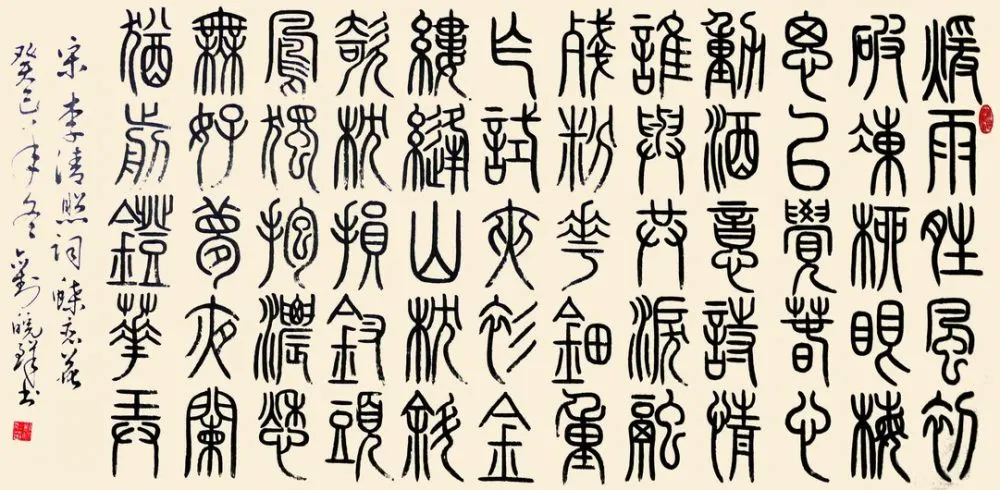 煖雨晴風初
破凍柳眼梅
思已覺春心
動酒意詩情
誰與共淚融
殘粉花鈿重
乍試夾衫金
縷縫山枕斜
欹枕損釵頭
鳳獨抱濃愁
無好夢夜闌
猶剪鐙華弄
宋李清照詞蝶恋花
癸巳年冬劉曉書